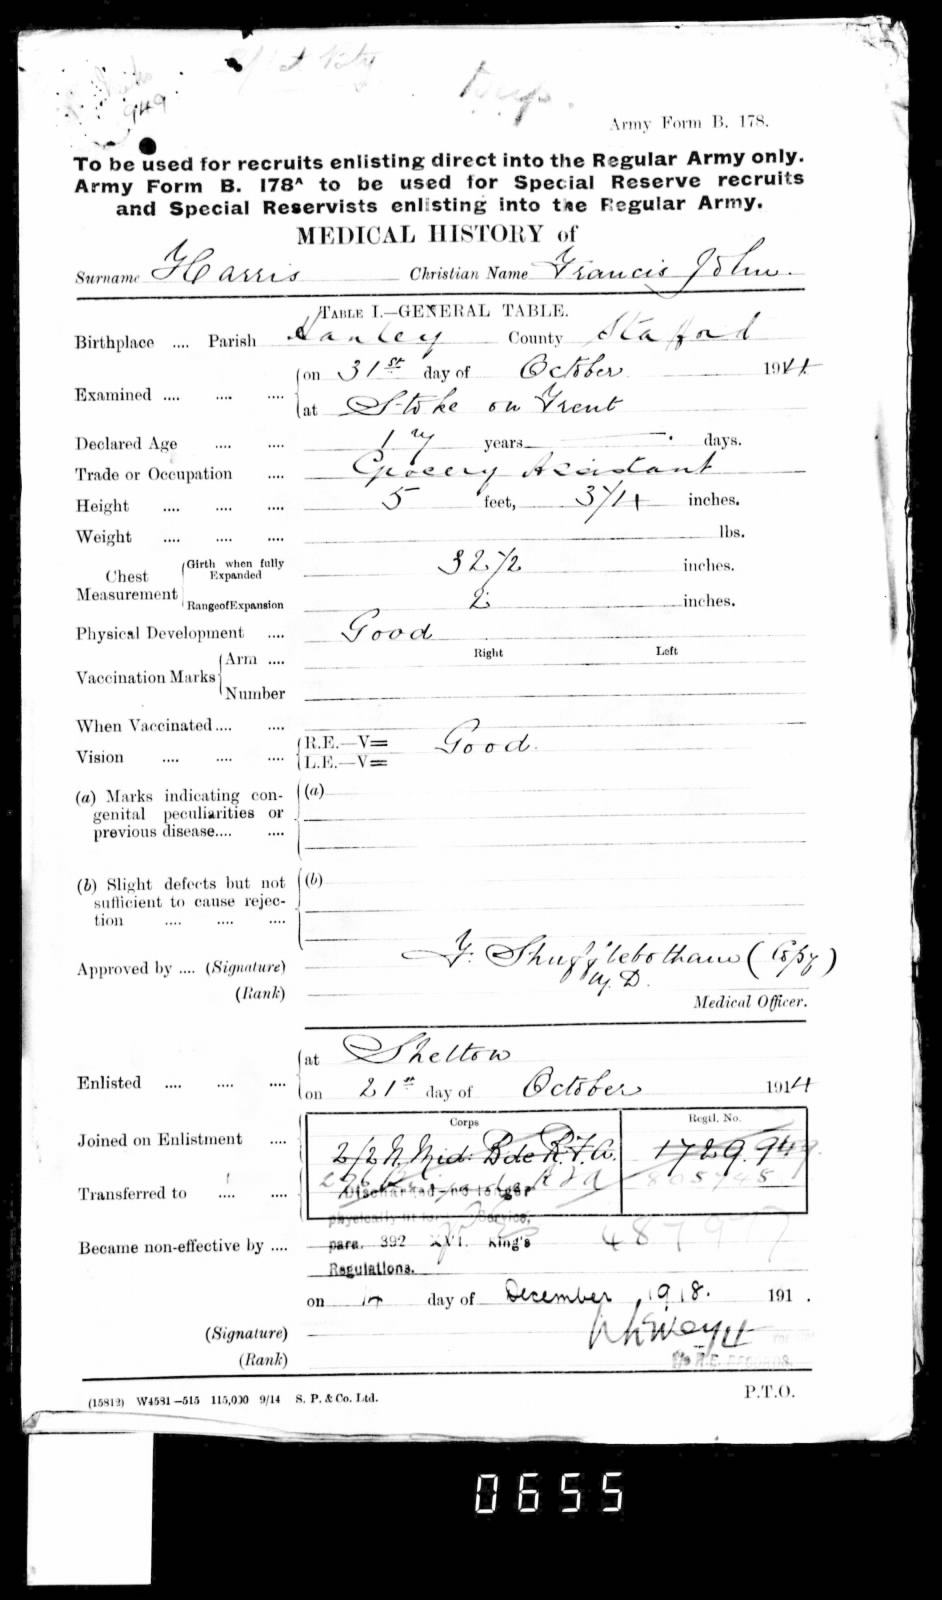 949
Army Form B. 178.
To be used for recruits enlisting direct into the Regular Army only.
Army Form B. 178ᴬ to be used for Special Reserve recruits
and Special Reservists enlisting into the Regular Army.
MEDICAL HISTORY of
Surname Harris Christian Name Francis John.
TABLE I.—GENERAL TABLE.
Birthplace .... Parish Hanley County Stafford
Examined .... .... .... on 31st day of October 1914
at Stoke on Trent
Declared Age .... .... years days.
Trade or Occupation .... Grocery Assistant
Height .... .... .... 5 feet, 3 1/4 inches.
Weight .... .... .... lbs.
Chest Measurement Girth when fully Expanded 32 1/2 inches.
Range of Expansion 2 inches.
Physical Development .... Good
Right Left
Vaccination Marks Arm ....
Number
When Vaccinated .... ....
Vision .... .... .... R.E.—V= Good.
L.E.—V=
(a) Marks indicating con- (a)
genital peculiarities or
previous disease.... ....
(b) Slight defects but not (b)
sufficient to cause rejec-
tion .... .... ....
Approved by .... (Signature) F. Shufflebotham (Copy)
M.D.
(Rank)
Medical Officer.
Enlisted .... .... .... at Shelton
on 21st day of October 1914
Corps Regtl. No.
Joined on Enlistment .... 2/2 N. Mid: Bde R.F.A. 1729. 949
Transferred to .... ....
Discharged—no longer
physically fit for Service,
Became non-effective by .... para. 392 XVI. King's
Regulations.
on day of December, 1918. 191 .
(Signature)
(Rank)
(15812) W4581—515 115,000 9/14 S. P. & Co. Ltd.
P.T.O.
0655